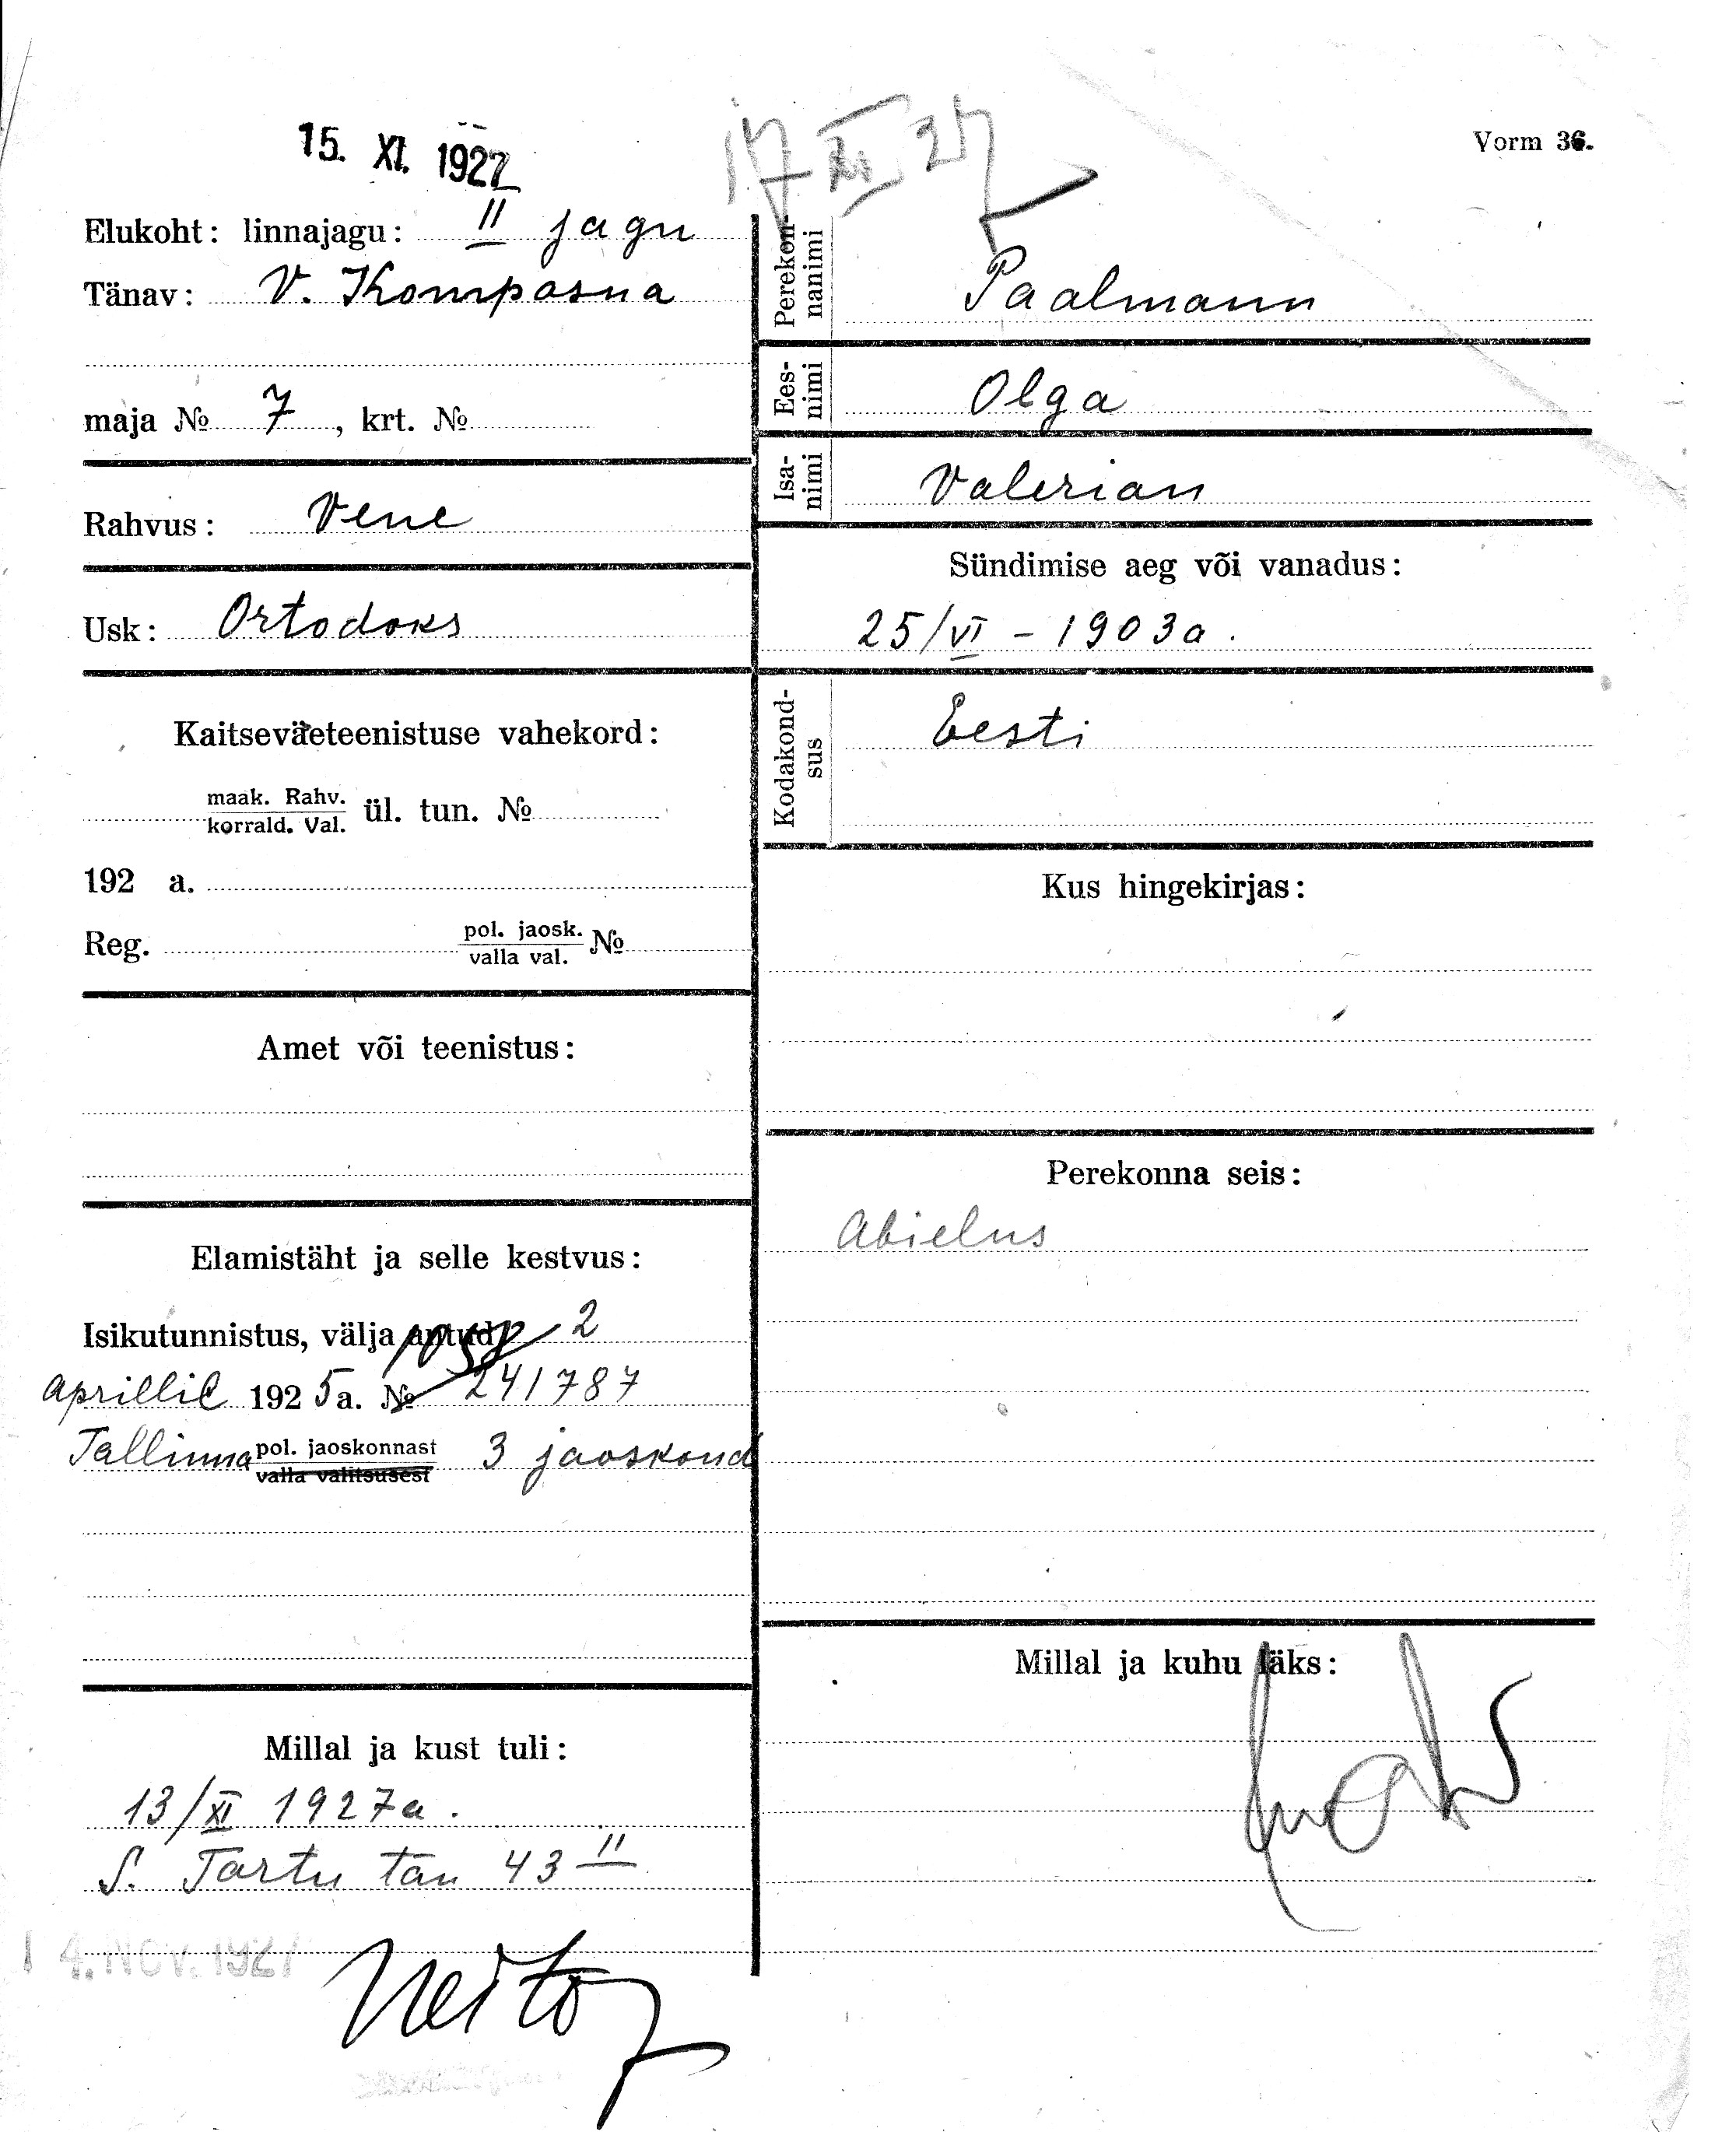 15. XI. 1927
17 XI 27
Vorm 36.
Elukoht: linnajagu: II jagu
Tänav: V. Kompasna
maja № 7, krt. №
Rahvus: Vene
Usk: Ortodoks
Kaitseväeteenistuse vahekord:
maak. Rahv.
korrald. Val. ül. tun. №
192 a.
Reg. pol. jaosk. №
valla val.
Amet või teenistus:
Elamistäht ja selle kestvus:
Isikutunnistus, välja antud 2
1058
Aprillil 1925 a. № 241787
Tallinna pol. jaoskonnast 3 jaoskond
valla valitsusest
Millal ja kust tuli:
13/XI 1927 a.
S. Tartu tän 43 II
14. NOV. 1927
Perekonnanimi
Paalmann
Ees-
nimi
Olga
Isa-
nimi
Valerian
Sündimise aeg või vanadus:
25/VI - 1903 a.
Kodakond-
sus
Eesti
Kus hingekirjas:
Perekonna seis:
Abielus
Millal ja kuhu läks: